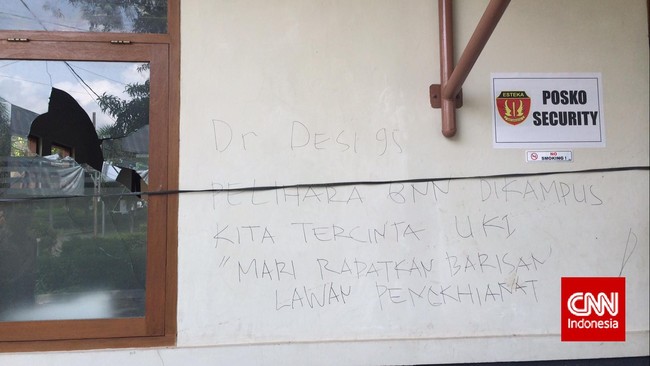 ESTEKA
POSKO
SECURITY
NO
SMOKING !
Dr Desi gs
PELIHARA BNN DIKAMPUS
KITA TERCINTA UKI
"MARI RAPATKAN BARISAN
LAWAN PENGKHIANAT
CNN
Indonesia